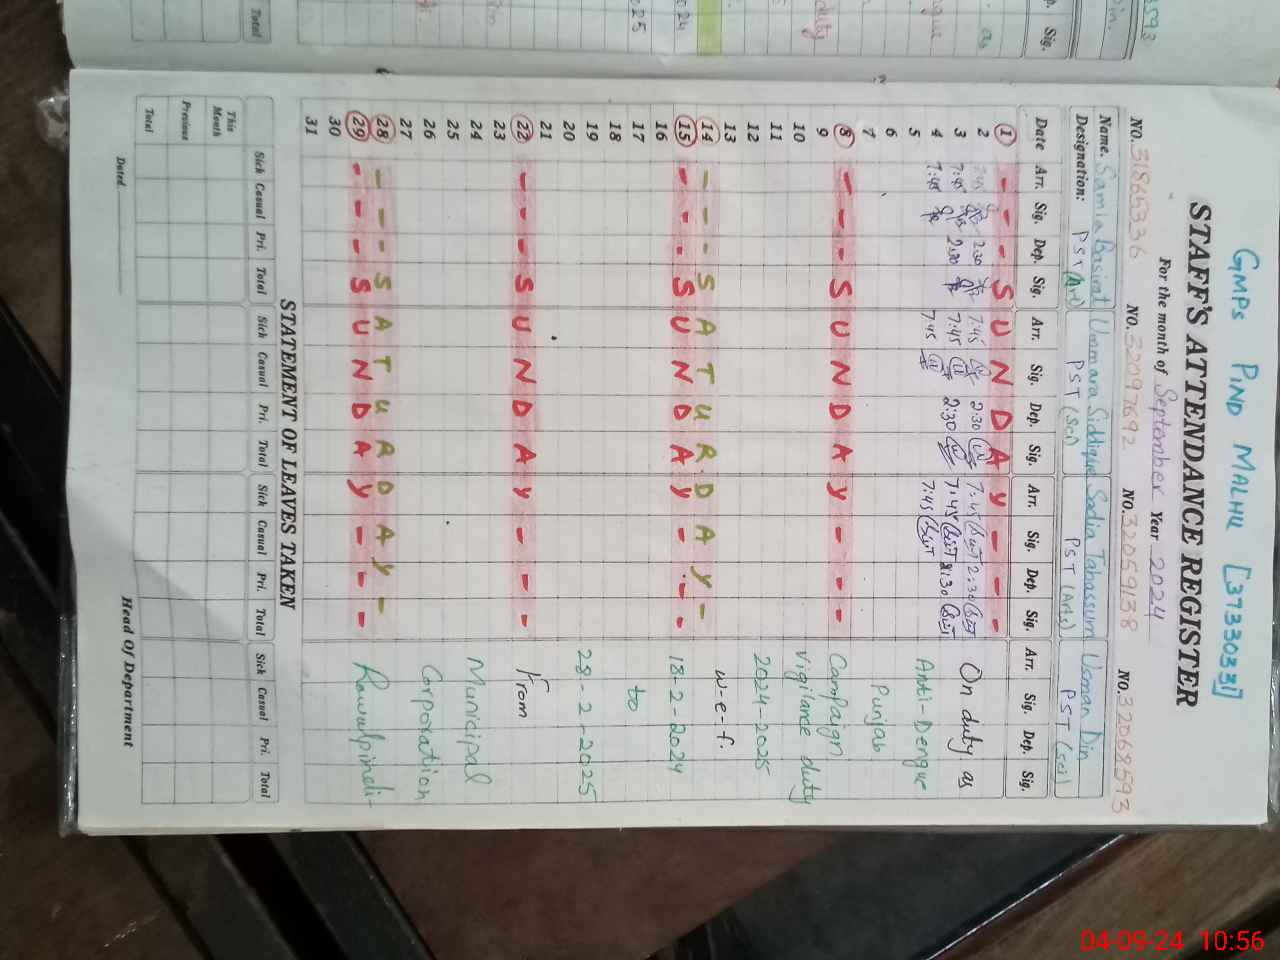 GMPS PIND MALHU [37330331]
STAFF'S ATTENDANCE REGISTER
For the month of September Year 2024
NO. 31865336 NO. 32097692 NO. 32059138 NO. 32068593
Name. Samia Basirat Ummara Siddique Sadia Tabassum Usman Din
Designation: PST (Art) PST (Sci) PST (Arts) PST (sci)
Date Arr. Sig. Dep. Sig. Arr. Sig. Dep. Sig. Arr. Sig. Dep. Sig. Arr. Sig. Dep. Sig.
1 - - - S U N D A Y - - -
2 7:45 2:30 7:45 2:30 7:45 2:30
3 7:45 2:30 7:45 2:30 7:45 2:30 On duty as
4 7:45 7:45 7:45
5 Anti-Dengue
6
7 Punjab
8 - - - S U N D A Y - - -
Campaign
9
10 vigilance duty
11
12 2024-2025
13 w-e-f.
14 - - - S A T U R D A Y -
15 - - - S U N D A Y - - -
18-2-2024
16
17 to
18
19 28-2-2025
20
21
22 - - - S U N D A Y - - -
From
23
24 Municipal
25
26 Corporation
27
28 - - - S A T U R D A Y -
29 - - - S U N D A Y - - -
Rawalpindi-
30
31
STATEMENT OF LEAVES TAKEN
Sick Casual Pri. Total Sick Casual Pri. Total Sick Casual Pri. Total Sick Casual Pri. Total
This Month
Previous
Total
Dated. Head Of Department
04-09-24 10:56